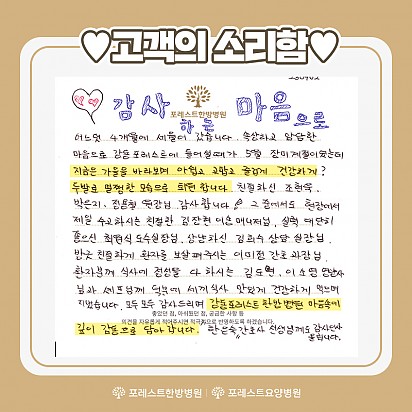 ♥고객의 소리함♥
감사 하는 마음으로
포레스트한방병원
어느덧 4개월에 세월이 갔습니다. 속상하고 답답한
마음으로 강릉포레스트에 들어설때가 5월 장미계절이였는데
지금은 가을을 바라보며 아쉽고 고맙고 즐겁게 건강하게?
두발로 멀쩡한 모습으로 퇴원 합니다. 친절하신 조현욱,
박은지, 원장님 감사합니다 그 곁에서도 현장에서
제일 수고하시는 친절한 김장현 이은 매니저님, 실력 대단히
좋으신 최현식 도수실장님, 상냥하신 김희수 상담 실장님.
방긋 친절하게 환자를 보살펴주시는 이미정 간호 과장님,
환자분께 식사에 정성을 다 하시는 김도연, 이소영 영양사
님과 셰프님께 덕분에 세끼식사 맛있게 건강하게 먹으며
지냈습니다. 모두모두 감사드리며 강릉포레스트한방병원 마음속에
좋았던 점, 아쉬웠던 점, 궁금한 사항 등
의견을 자유롭게 적어주시면 적극적으로 반영하도록 하겠습니다.
깊이 감동으로 담아 갑니다. 간호사 선생님께도 감사인사
포레스트한방병원 | 포레스트요양병원